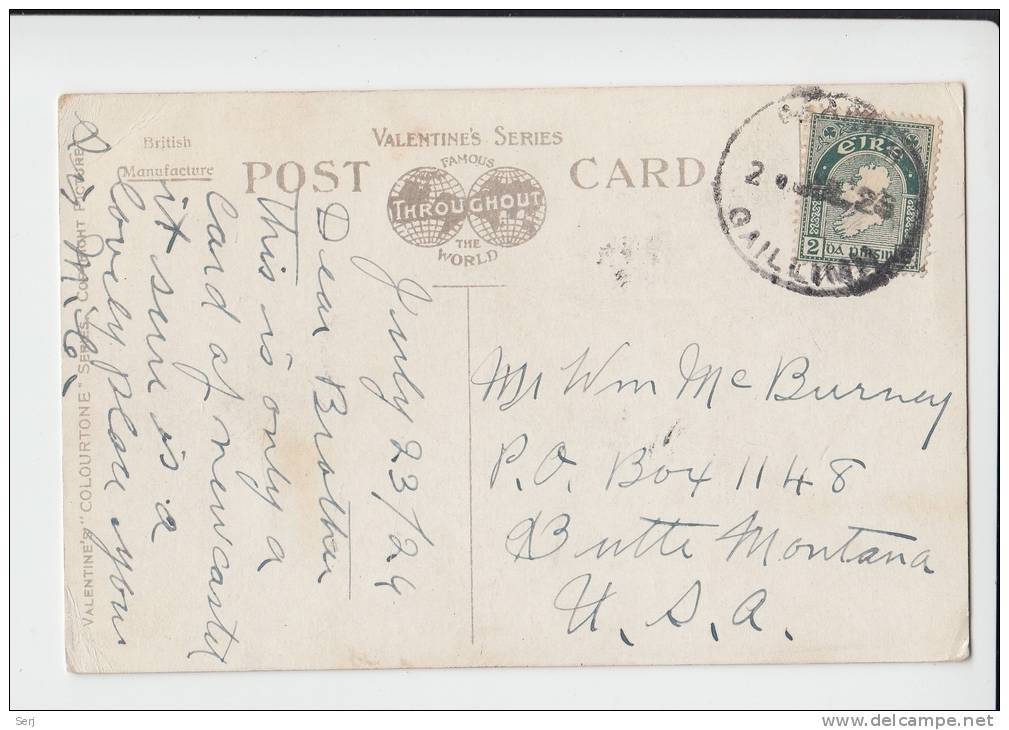 British
Manufacture
VALENTINE'S SERIES
POST CARD
FAMOUS
THROUGHOUT
THE
WORLD
VALENTINE'S "COLOURTONE" SERIES. COPYRIGHT PICTURE
éire
2
GAILLIMH
July 23/24
Dear Brother
this is only a
card of newcastel
it sure is a
lovely place your
Mr Wm McBurney
P.O. Box 1148
Butte Montana
U.S.A.
Serj
delcampe.net